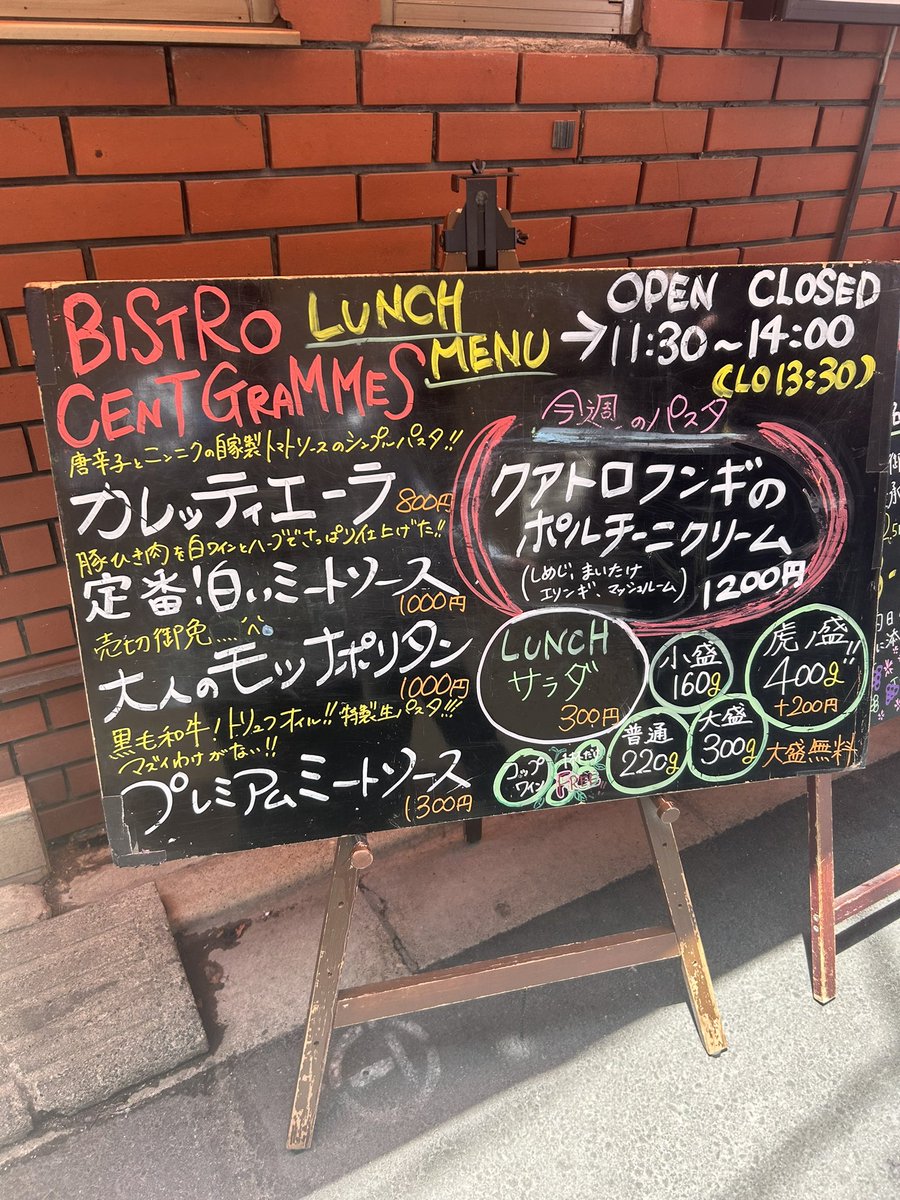 BISTRO
CENT GRAMMES
LUNCH
MENU
OPEN CLOSED
→11:30~14:00
(LO 13:30)
唐辛子とニンニクの自家製トマトソースのシンプルパスタ!!
カレッティエーラ 800円
豚ひき肉を白ワインとハーブでさっぱり仕上げた!!
定番!白いミートソース
1000円
売切御免.....
大人のモッツァナポリタン
1000円
黒毛和牛!トリュフオイル!!特製生パスタ!!!
マズイわけがない!!
プレミアムミートソース
1300円
今週のパスタ
クアトロフンギの
ポルチーニクリーム
(しめじ、まいたけ
エリンギ、マッシュルーム)
1200円
LUNCH
サラダ
300円
小盛
160g
虎ノ盛!!
400g
+200円
普通
220g
大盛
300g
大盛無料
コップ
ワイン
FREE